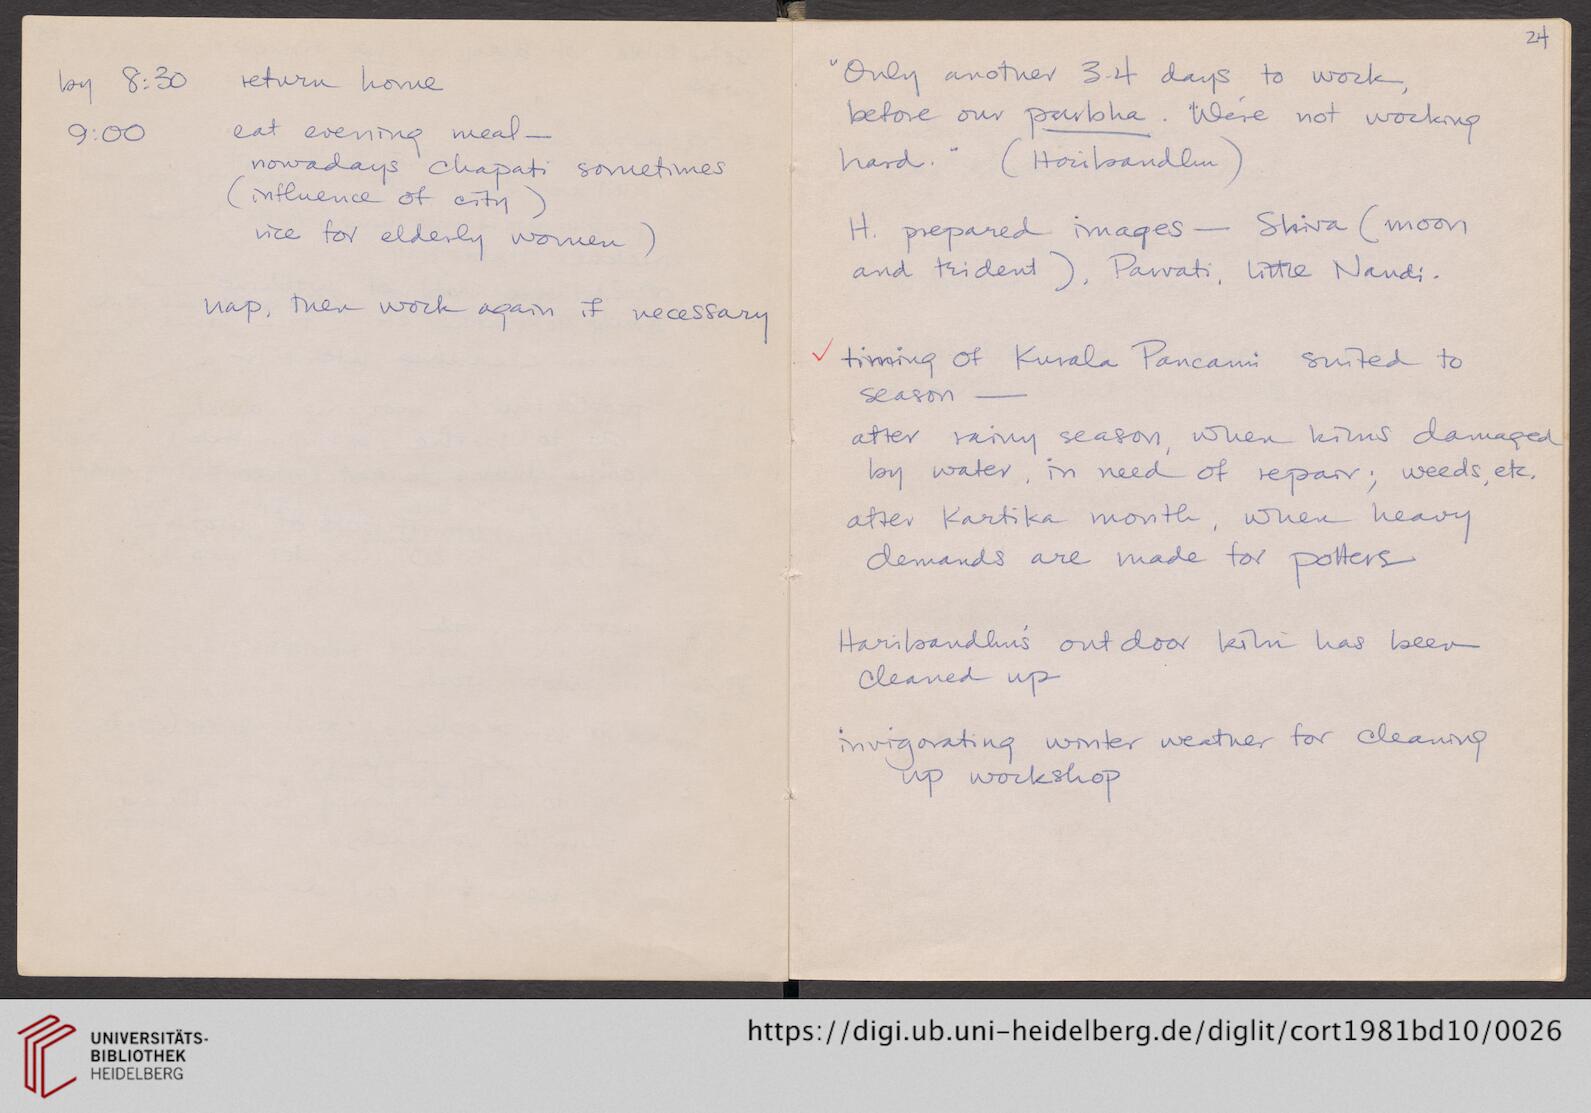 by 8:30 return home
9:00 eat evening meal —
nowadays chapati sometimes
(influence of city)
rice for elderly women)
nap, then work again if necessary
24
"Only another 3-4 days to work,
before our parbha. "We're not working
hard." (Haribandhu)
H. prepared images — Shiva (moon
and trident), Parvati, little Nandi.
✓ timing of Kurala Pancami suited to
season —
after rainy season, when kilns damaged
by water, in need of repair; weeds, etc.
after Kartika month, when heavy
demands are made for potters
Haribandhu's outdoor kiln has been
cleaned up
invigorating winter weather for cleaning
up workshop
UNIVERSITÄTS-
BIBLIOTHEK
HEIDELBERG
https://digi.ub.uni-heidelberg.de/diglit/cort1981bd10/0026